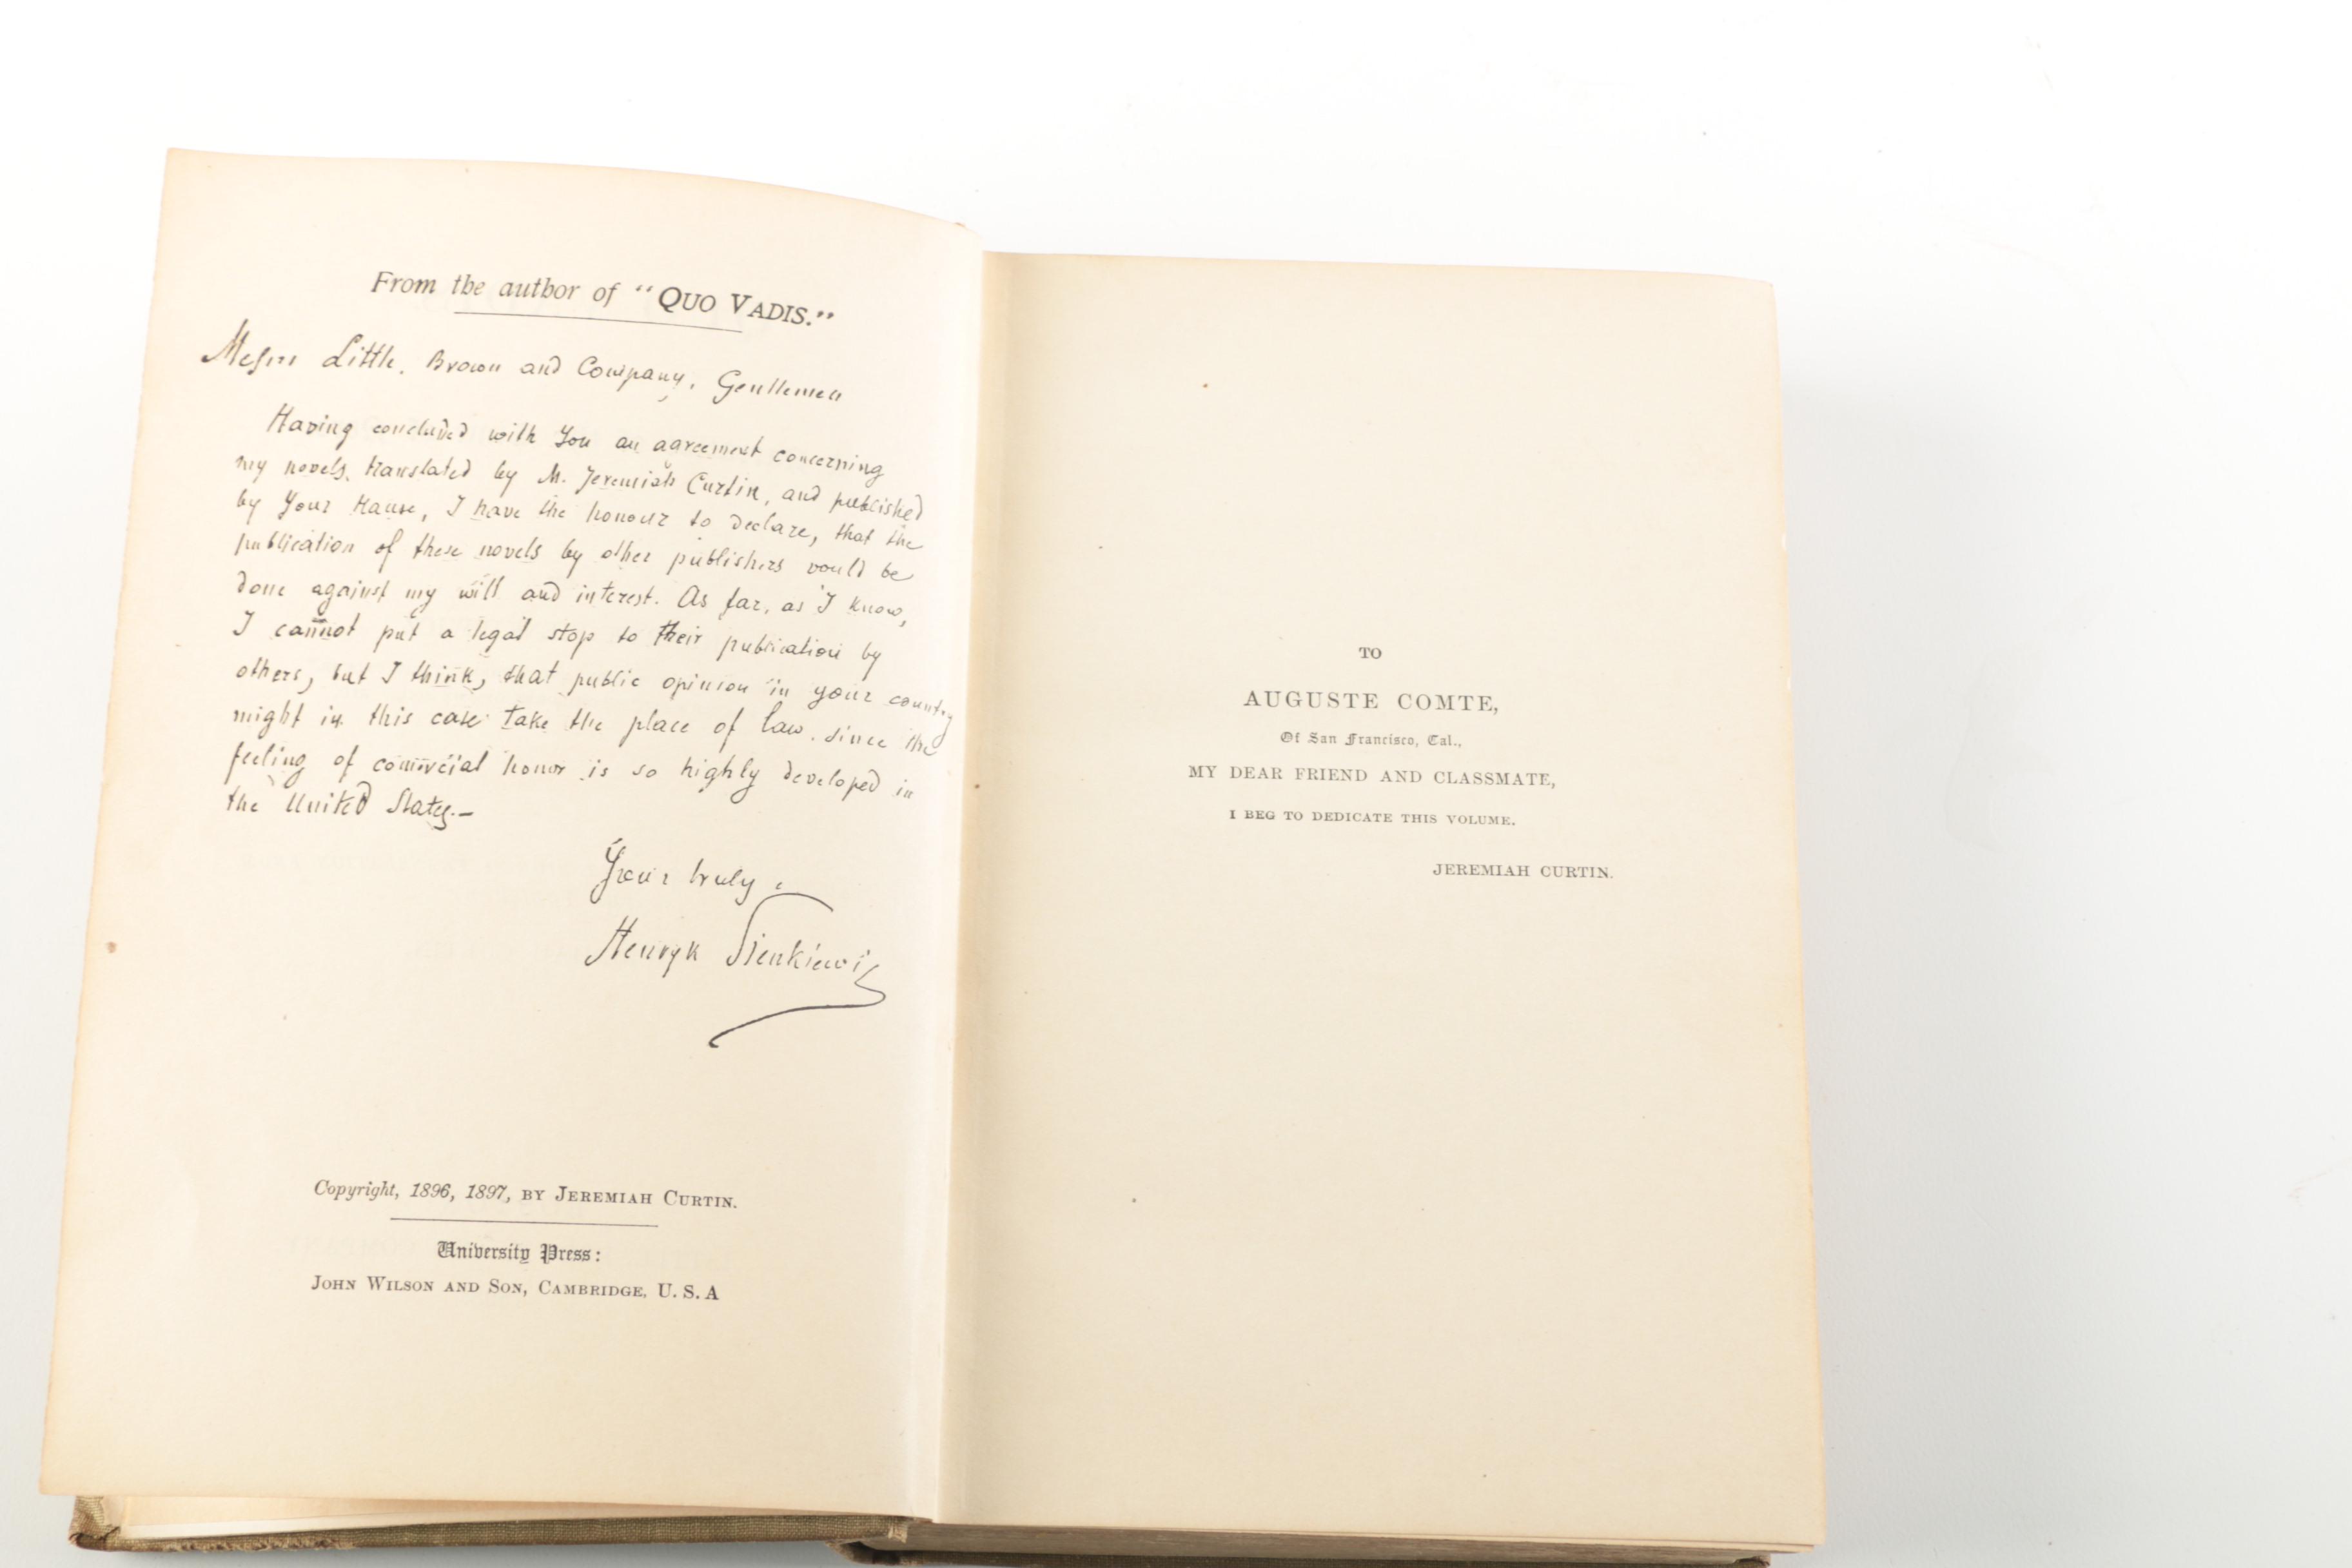 From the author of "QUO VADIS."
Messrs Little, Brown and Company, Gentlemen
Having concluded with You an agreement concerning
my novels, translated by M. Jeremiah Curtin, and published
by Your Hause, I have the honour to declare, that the
publication of these novels by other publishers vould be
done against my will and interest. As far, as I know,
I cannot put a legal stop to their publication by
others, but I think, that public opinion in your country
might in this case take the place of law, since the
feeling of comercial honor is so highly developed in
the United States.—
Your truly,
Henryk Sienkiewicz
Copyright, 1896, 1897, BY JEREMIAH CURTIN.
University Press:
JOHN WILSON AND SON, CAMBRIDGE, U. S. A
TO
AUGUSTE COMTE,
Of San Francisco, Cal.,
MY DEAR FRIEND AND CLASSMATE,
I BEG TO DEDICATE THIS VOLUME.
JEREMIAH CURTIN.